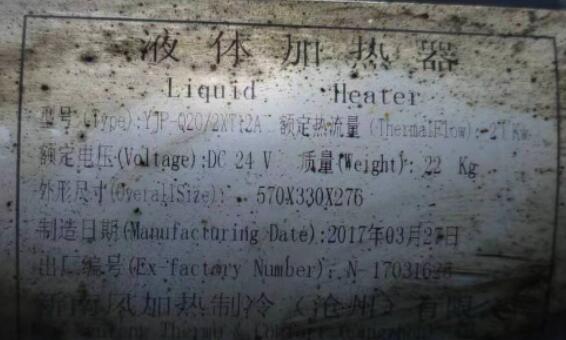 液体加热器
Liquid Heater
型号(Type):YJP-Q20/2X 额定热流量(ThermalFlow): Kw
额定电压(Voltage):DC 24 V 质量(Weight): 22 Kg
外形尺寸(OverallSize): 570X330X276
制造日期(Manufacturing Date):2017年03月27日
出厂编号(Ex-factory Number): N-
南风加热制冷(沧州)有限